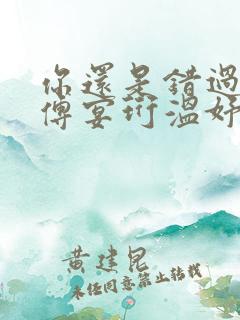 你還是錯過
傅宴珩溫妤
黃建昆
未任同意禁止转载